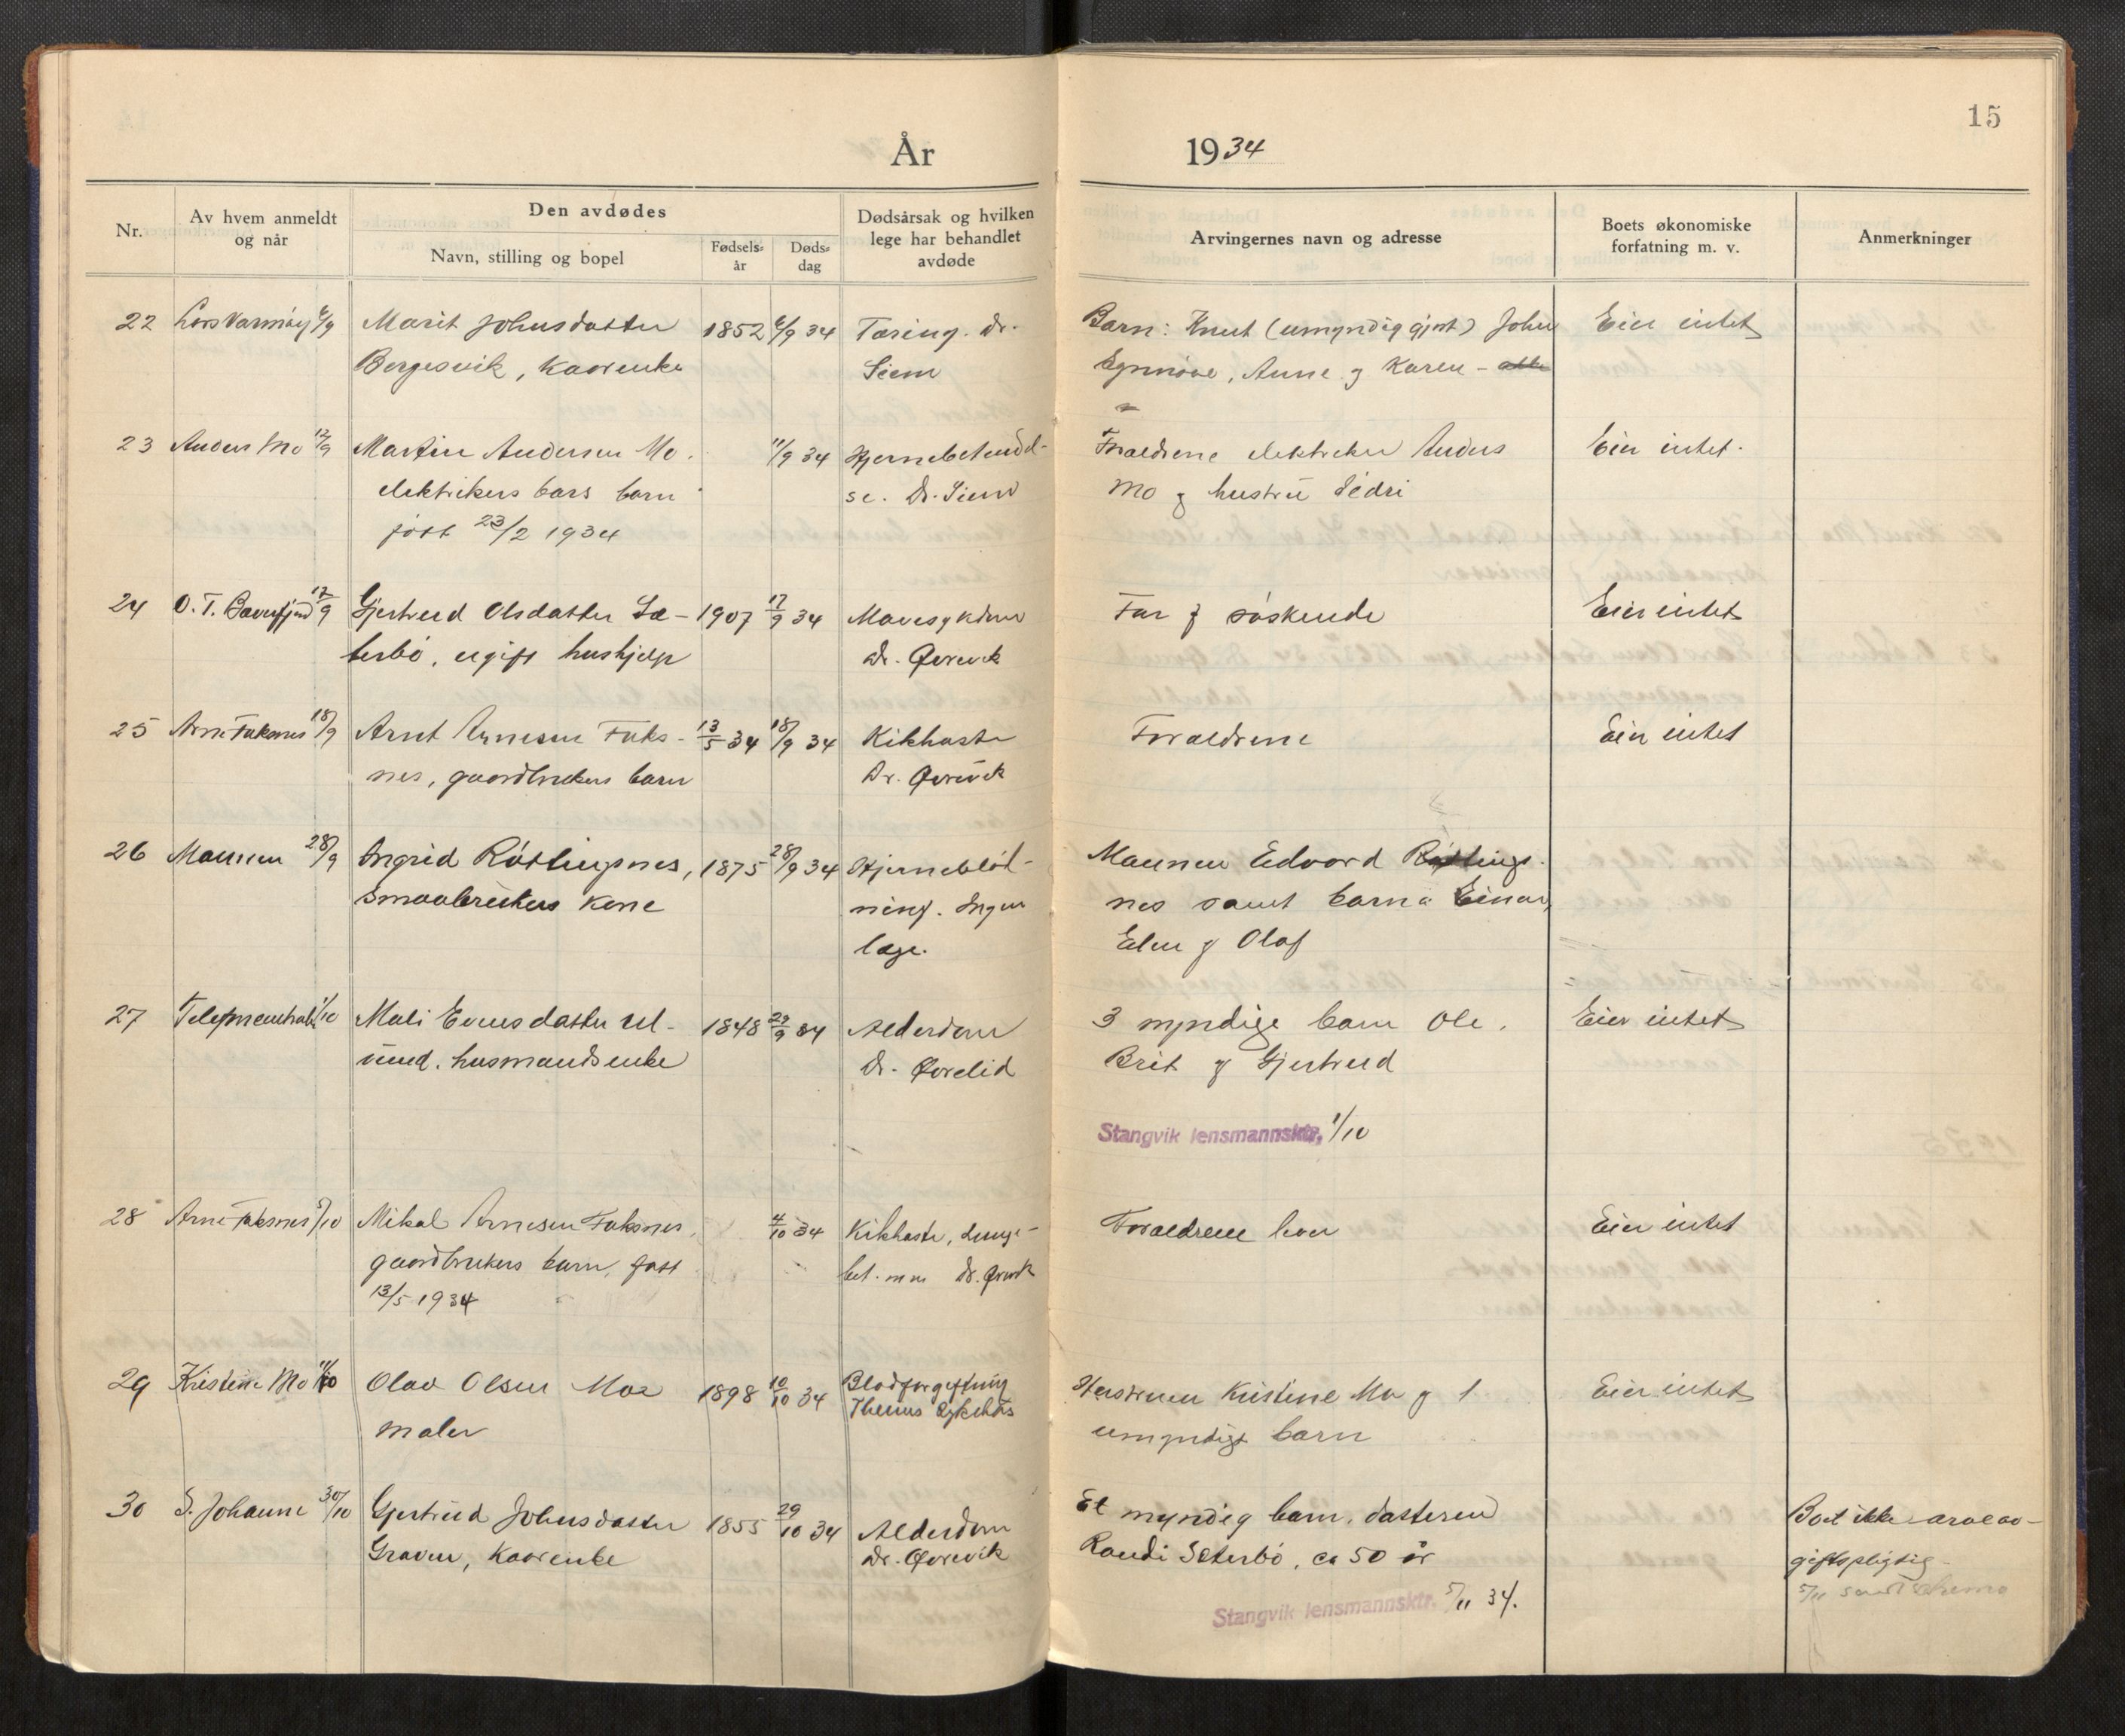 15
År 1934
Nr.
Av hvem anmeldt
og når
Den avdødes
Navn, stilling og bopel
Fødsels-
år
Døds-
dag
Dødsårsak og hvilken
lege har behandlet
avdøde
Arvingernes navn og adresse
Boets økonomiske
forfatning m. v.
Anmerkninger
22 Lars Varmöy 6/9 Marit Johnsdatter 1852 6/9 34 Tæring. Dr. Barn: Knut (umyndiggjort) John Eier intet
Bergesvik, kaarenke Siem Synnöve, Anne og Karen - alle
23 Anders Mo 12/9 Martin Andersen Mo. 11/9 34 Hjernebetendel- Foraeldrene elektriker Anders Eier intet.
elektrikers bars barn se. Dr. Siem Mo og hustru Sidri
födt 23/2 1934
24 O. T. Bæverfjord 17/9 Gjertrud Olsdatter Sæ- 1907 17/9 34 Mavesykdom Far og söskende Eier intet
terbö, ugift hushjelp Dr. Qvrevik
25 Arne Faksnes 18/9 Arnt Arnesen Faks- 13/5 34 18/9 34 Kikhoste Foraeldrene Eier intet
nes, gaardbrukers barn Dr. Qvrevik
26 Mannen 28/9 Ingrid Röttingsnes, 1875 28/9 34 Hjerneblöd- Mannen Edvard Röttings-
Smaabrukers kone ning. Ingen nes samt barna Einar,
læge. Elen og Olaf
27 Telefoncentralen 1/10 Mali Evensdatter Ul- 1848 29/9 34 Alderdom 3 myndige barn Ole, Eier intet
und. husmandsenke Dr. Qvrelid Brit og Gjertrud
Stangvik lensmannsktr. 1/10
28 Arne Faksnes 5/10 Mikal Arnesen Faksnes, 4/10 34 Kikhoste, Lunge- Foraeldrene lever Eier intet
gaardbrukers barn, födt bet. m m Dr. Qvrevik
13/5 1934
29 Kristine Mo 11/10 Olav Olsen Moe 1898 10/10 34 Blodforgiftning Hustruen Kristine Mo og 1 Eier intet
maler Sykehus umyndigt barn
30 S. Johanne 30/10 Gjertrud Johnsdatter 1855 29/10 34 Alderdom Et myndig barn, datteren Boet ikke arveav-
Graven, Kaarenke Dr. Qvrevik Randi Seterbö, ca 50 år giftspligtig
Stangvik lensmannsktr. 5/11 34. 5/11 sendt skema